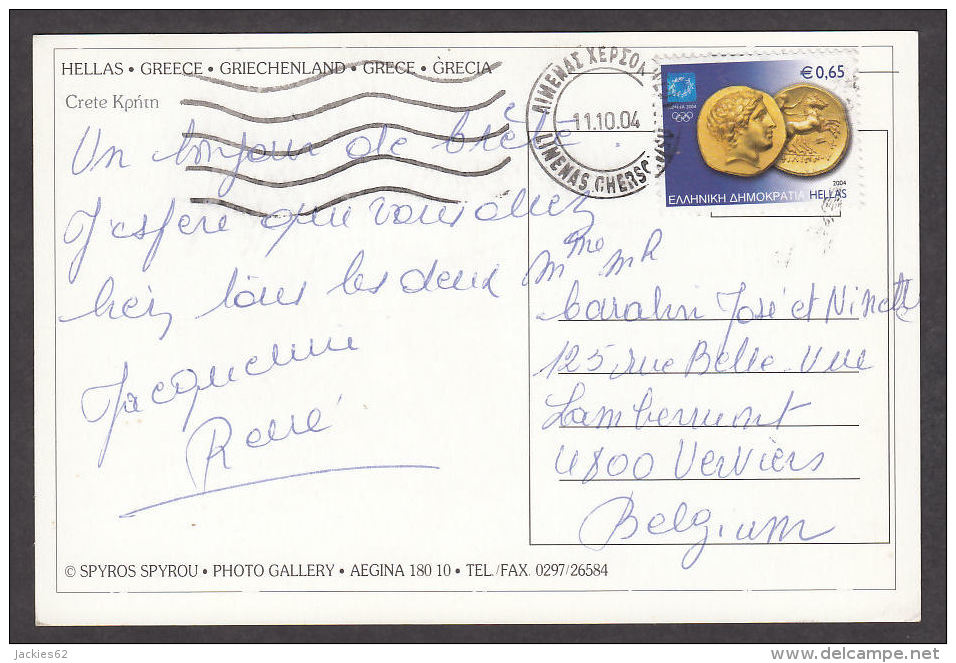 HELLAS • GREECE • GRIECHENLAND • GRECE • GRECIA
Crete Κρήτη
Un bonjour de Crète.
J'espère que vous allez
bien tous les deux
Jacqueline
René
ΛΙΜΕΝΑΣ ΧΕΡΣΟΝ
11.10.04
LIMENAS CHERSO
€0,65
ATHENS 2004
2004
ΕΛΛΗΝΙΚΗ ΔΗΜΟΚΡΑΤΙΑ HELLAS
Mme MR
José et Ninette
125 rue Belle-Vue
Lambermont
4800 Verviers
Belgium
© SPYROS SPYROU • PHOTO GALLERY • AEGINA 180 10 • TEL./FAX. 0297/26584
jackies62
delcampe.net